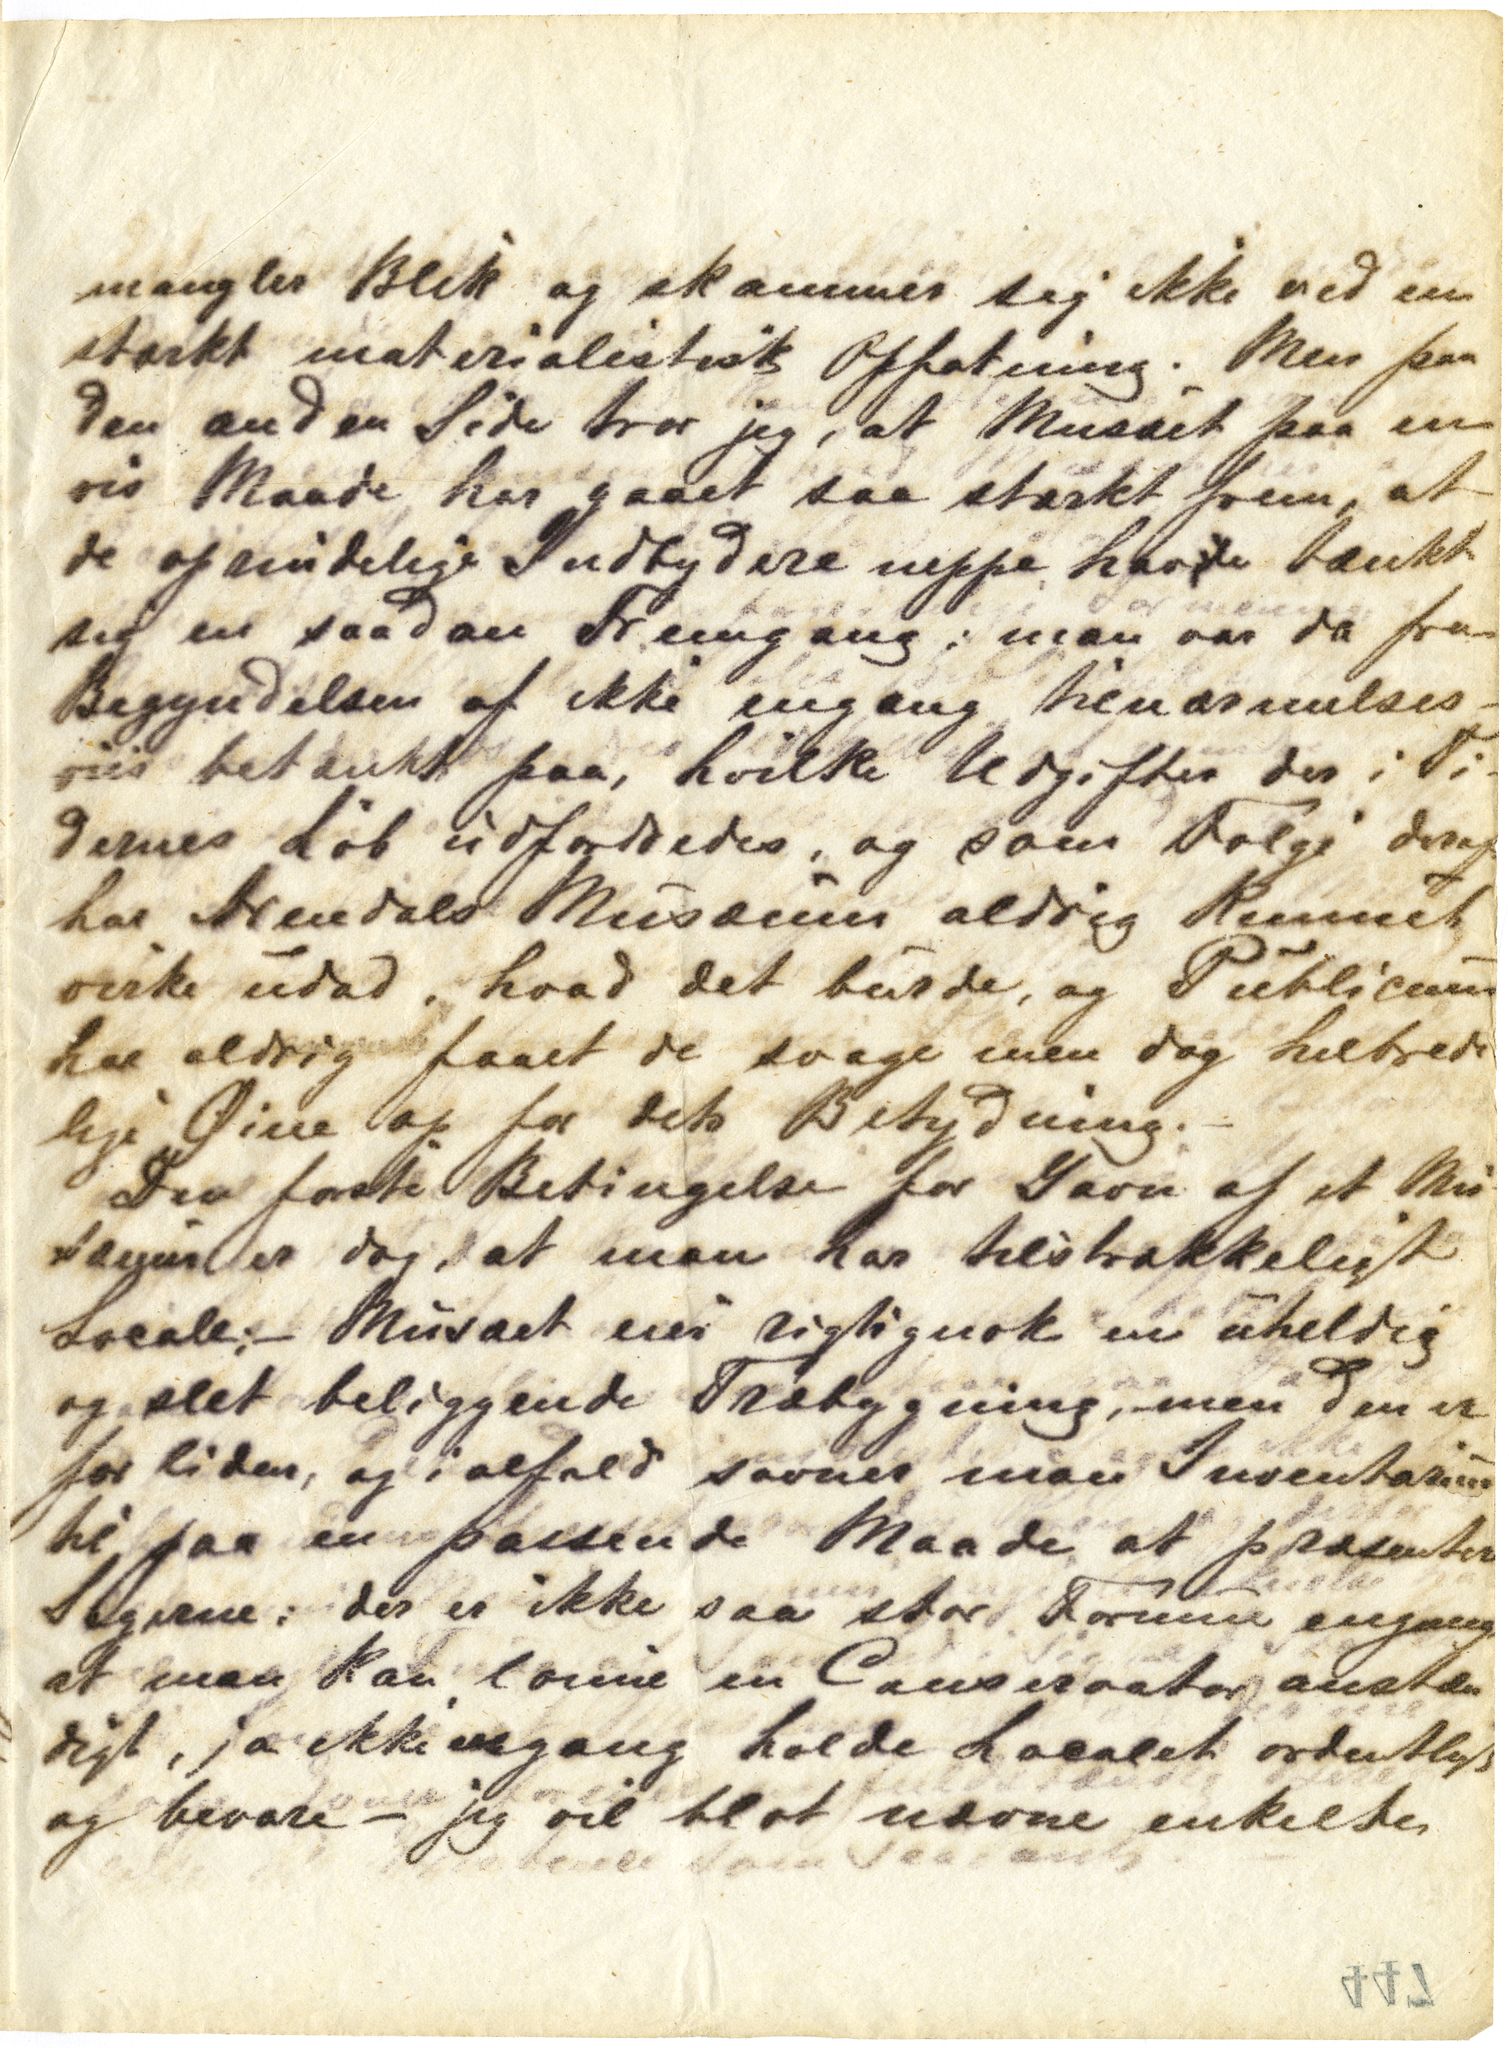 mangler Blik og skammer sig ikke ved en
stærkt materialistisk Opfatning. Men paa
den anden Side tror jeg, at Musæet paa en
vis Maade har gaaet saa stærkt frem, at
de oprindelige Indbydere neppe havde tænkt
sig en saadan Fremgang; man var da fra
Begyndelsen af ikke engang tilnærmelses-
viis betænkt paa, hvilke Udgifter der i Ti-
dernes Løb udfordredes, og som Følge deraf
har Arendals Musæum aldrig kunnet
virke udad, hvad det burde, og Publicum
har aldrig faaet de svage men dog helbrede
lige Øine op for dets Betydning. -
Den første Betingelse for Gavn af et Mu-
sæum er dog, at man har tilstrækkeligt
Locale; - Musæet eier rigtignok en uheldig
og slet beliggende Træbygning, - men den er
for liden, og i alfald savner man Inventarium
til paa en passende Maade at præsentere
Sagerne; der er ikke saa stor Formue engang
at man kan lønne en Conservator anstæn
digt, ja ikke engang holde Localet ordentligt
og bevare - jeg vil blot nævne enkelte
447